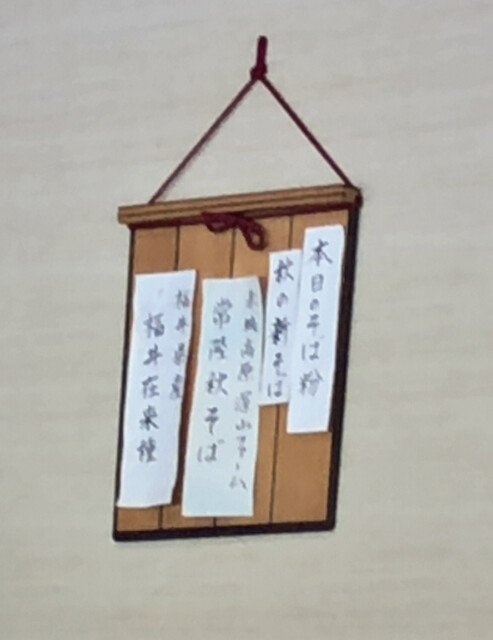 本日のそば粉
秋の新そば
高原 深山ファーム
常陸秋そば
福井県産
福井在来種